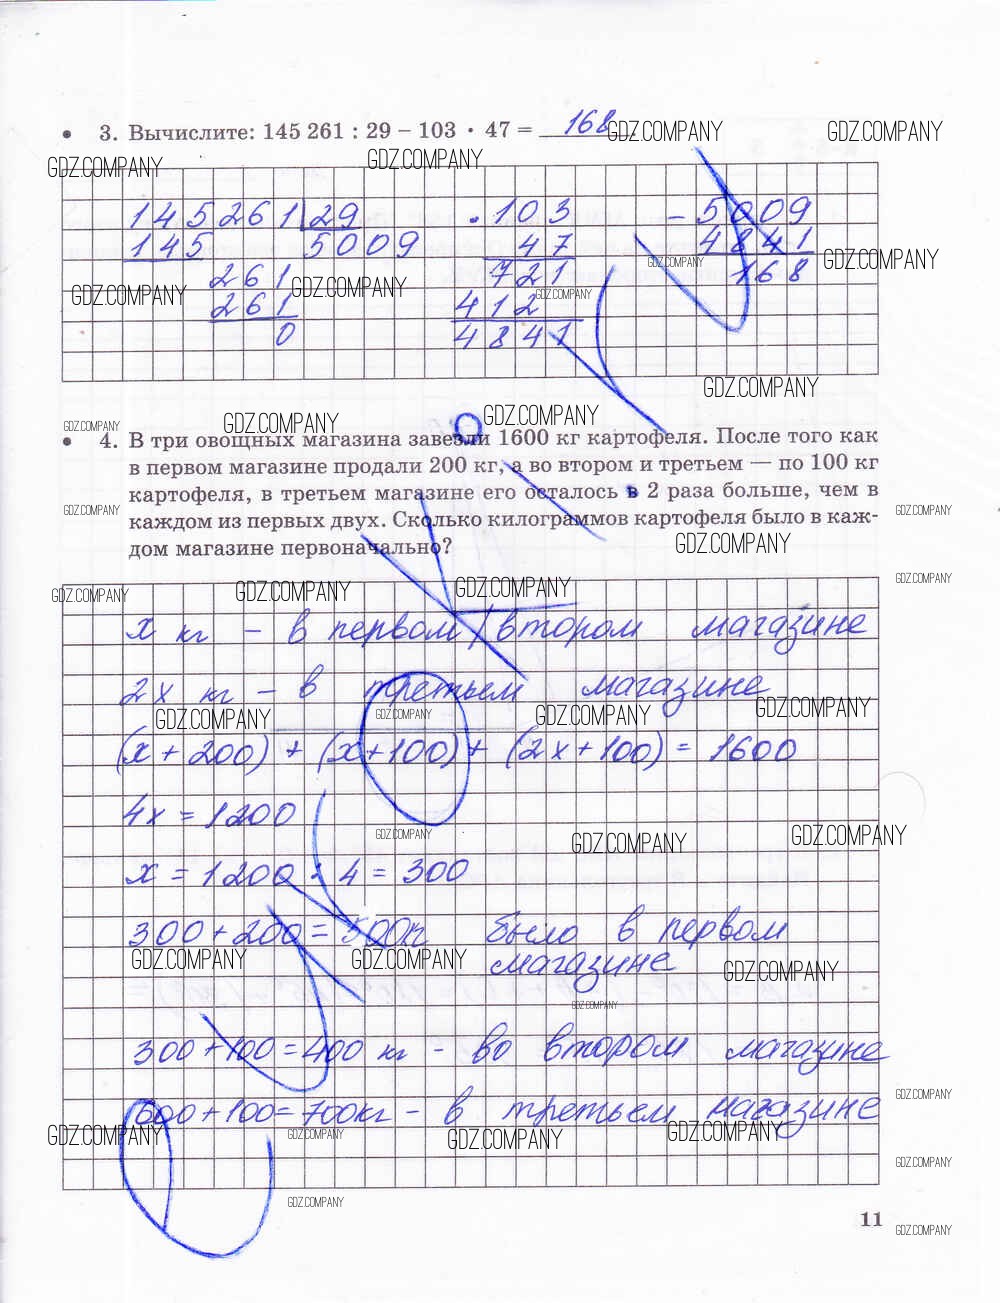 • 3. Вычислите: 145 261 : 29 – 103 · 47 = 168
GDZ.COMPANY GDZ.COMPANY
GDZ.COMPANY GDZ.COMPANY
145261 29 · 103 – 5009
145 5009 47 4841
GDZ.COMPANY GDZ.COMPANY
261 721 168
GDZ.COMPANY GDZ.COMPANY GDZ.COMPANY
261 412
0 4841
GDZ.COMPANY
GDZ.COMPANY GDZ.COMPANY GDZ.COMPANY
• 4. В три овощных магазина завезли 1600 кг картофеля. После того как
в первом магазине продали 200 кг, а во втором и третьем — по 100 кг
картофеля, в третьем магазине его осталось в 2 раза больше, чем в
GDZ.COMPANY GDZ.COMPANY
каждом из первых двух. Сколько килограммов картофеля было в каж-
дом магазине первоначально?
GDZ.COMPANY
GDZ.COMPANY GDZ.COMPANY GDZ.COMPANY GDZ.COMPANY
х кг – в первом / втором магазине
2х кг – в третьем магазине
GDZ.COMPANY GDZ.COMPANY GDZ.COMPANY GDZ.COMPANY
(х + 200) + (х + 100) + (2х + 100) = 1600
4х = 1200
GDZ.COMPANY GDZ.COMPANY GDZ.COMPANY
х = 1200 : 4 = 300
300 + 200 = 500кг было в первом
магазине
GDZ.COMPANY GDZ.COMPANY GDZ.COMPANY
GDZ.COMPANY
300 + 100 = 400 кг – во втором магазине
GDZ.COMPANY
600 + 100 = 700кг – в третьем магазине
GDZ.COMPANY GDZ.COMPANY GDZ.COMPANY GDZ.COMPANY
GDZ.COMPANY
GDZ.COMPANY
11
GDZ.COMPANY